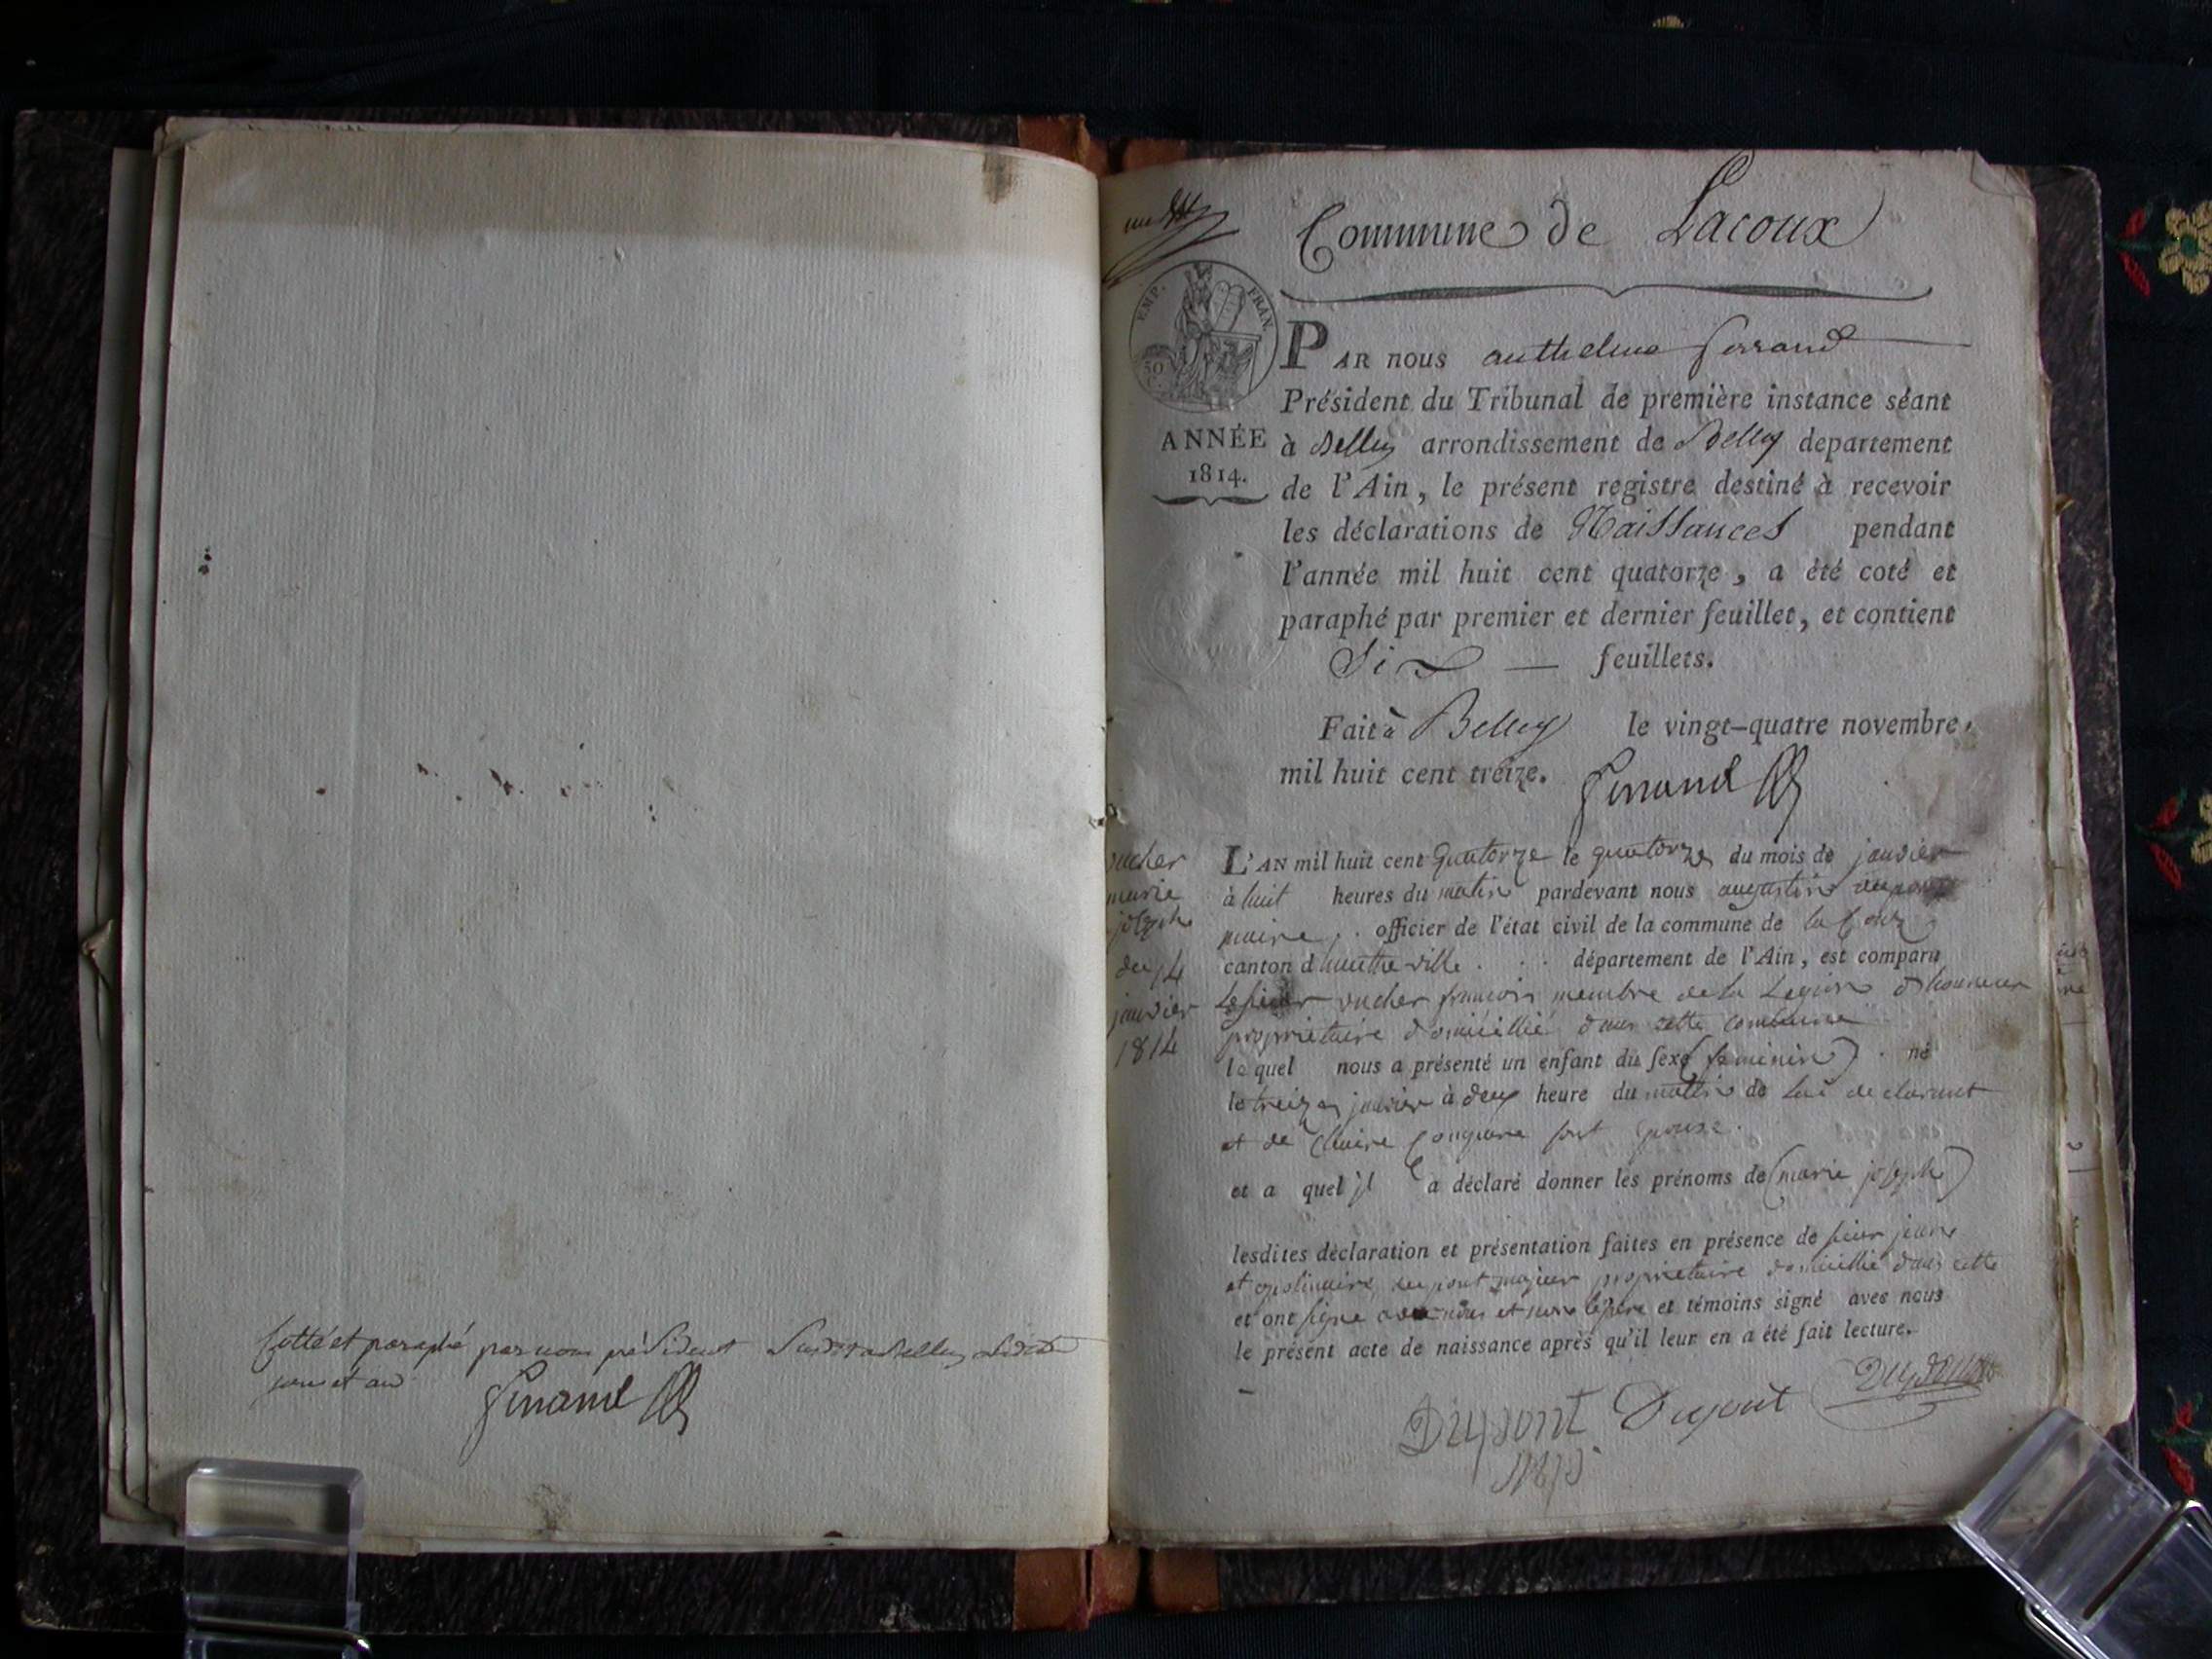 Cotté et paraphé par nous président
jour et an
Ferrand
Commune de Lacoux
EMP. FRAN.
50
C.
ANNÉE
1814.
PAR nous anthelme ferrand
Président du Tribunal de première instance séant
à Belley arrondissement de Belley departement
de l'Ain, le présent registre destiné à recevoir
les déclarations de Naissances pendant
l'année mil huit cent quatorze, a été coté et
paraphé par premier et dernier feuillet, et contient
Six — feuillets.
Fait à Belley le vingt-quatre novembre,
mil huit cent treize. Ferrand
vucher
marie
joseph
du 14
janvier
1814
L'AN mil huit cent quatorze le quatorze du mois de janvier
à huit heures du matin pardevant nous augustin dupont
maire officier de l'état civil de la commune de la Coux
canton d'hauteville département de l'Ain, est comparu
le sieur vucher françois membre de la Legion d'honneur
proprietaire domicillié dans cette commune
lequel nous a présenté un enfant du sexe (feminin) né
le treize janvier à deux heure du matin de lui declarant
et de Claire son epouse.
et a quel il a déclaré donner les prénoms de (marie joseph)
lesdites déclaration et présentation faites en présence de sieur jean
et apolinaire dupont majeur proprietaire domicillié dans cette
et ont signe avec nous et le pere et témoins signé avec nous
le présent acte de naissance après qu'il leur en a été fait lecture.
Dupont Dupont Dupont